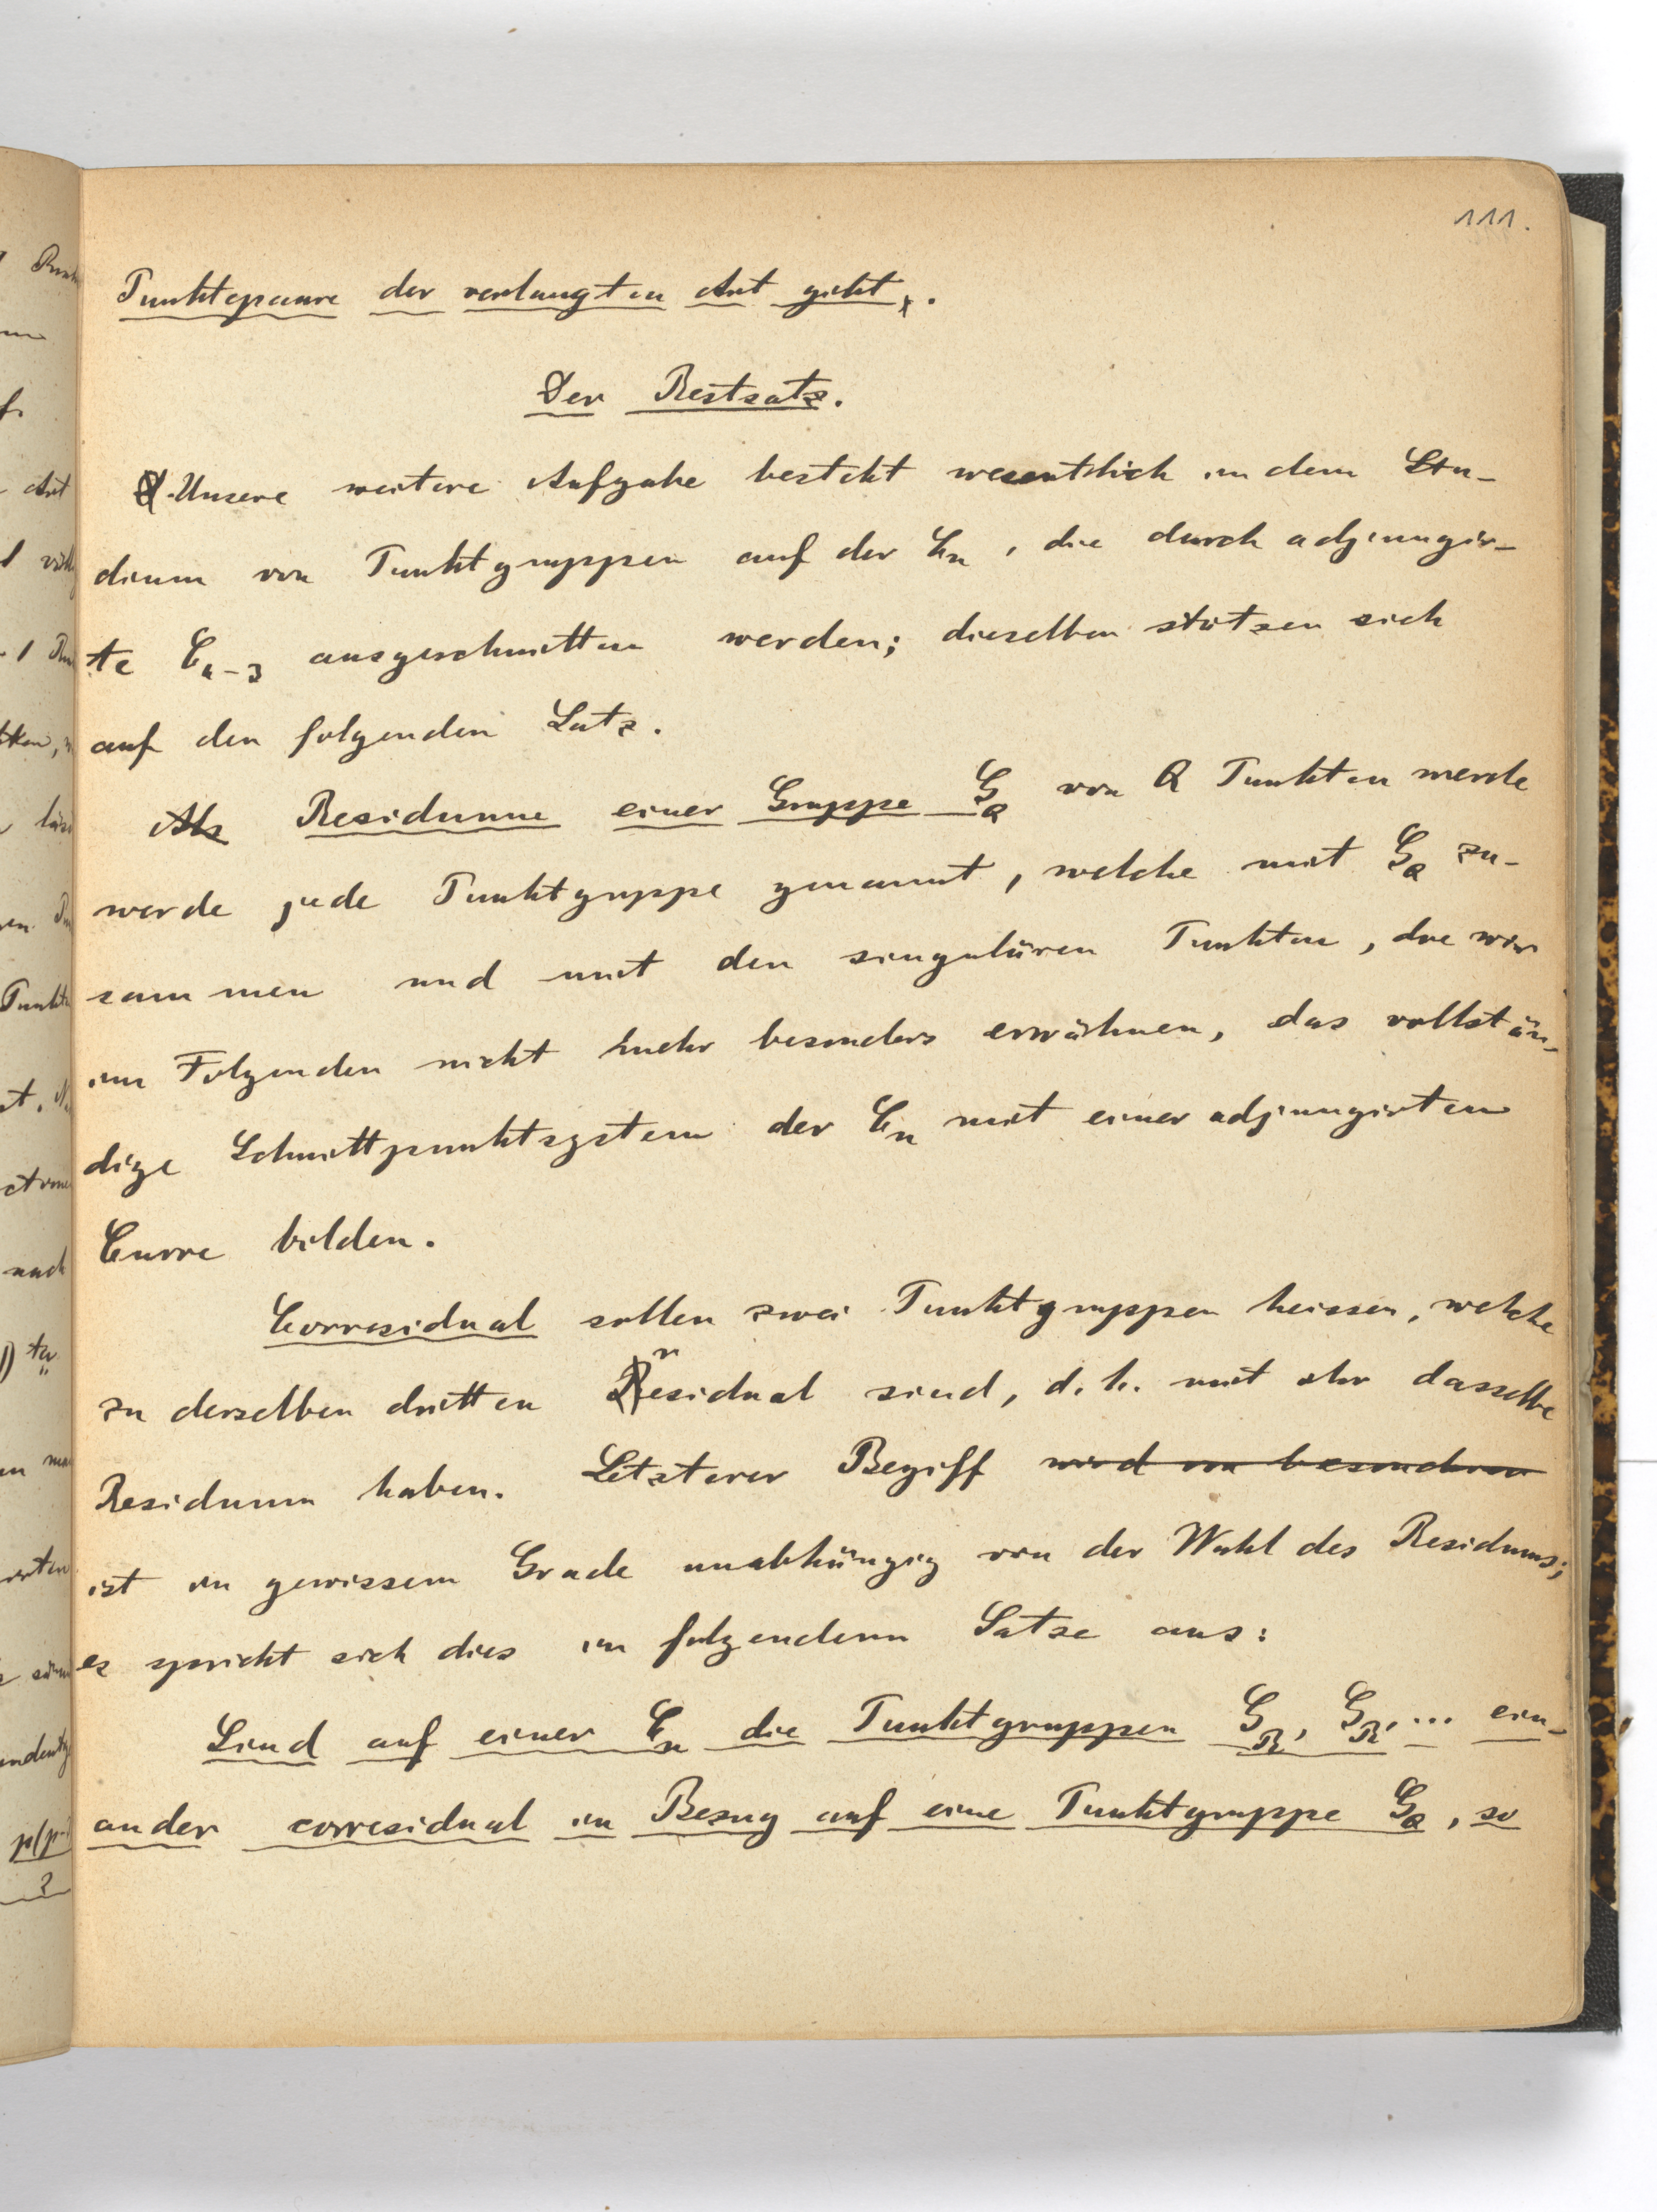 111.
Punktepaare der verlangten Art giebt.
Der Restsatz.
Unsere weitere Aufgabe besteht wesentlich in dem Stu-
dium von Punktgruppen auf der C_n, die durch adjungir-
te C_{n-3} ausgeschnitten werden; dieselben stützen sich
auf den folgenden Satz.
Als Residuum einer Gruppe G_Q von Q Punkten werde
werde jede Punktgruppe genannt, welche mit G_Q zu-
sammen und mit den singulären Punkten, die wir
im Folgenden nicht mehr besonders erwähnen, das vollstän-
dige Schnittpunktsystem der C_n mit einer adjungirten
Curve bilden.
Corresidual sollen zwei Punktgruppen heissen, welche
zu derselben dritten residual sind, d. h. mit ihr dasselbe
Residuum haben. Letzterer Begriff wird im besonderen
ist in gewissem Grade unabhängig von der Wahl des Residuums;
es spricht sich dies in folgendem Satze aus:
Sind auf einer C_n die Punktgruppen G_R, G_R', ... ein-
ander corresidual in Bezug auf eine Punktgruppe G_Q, so